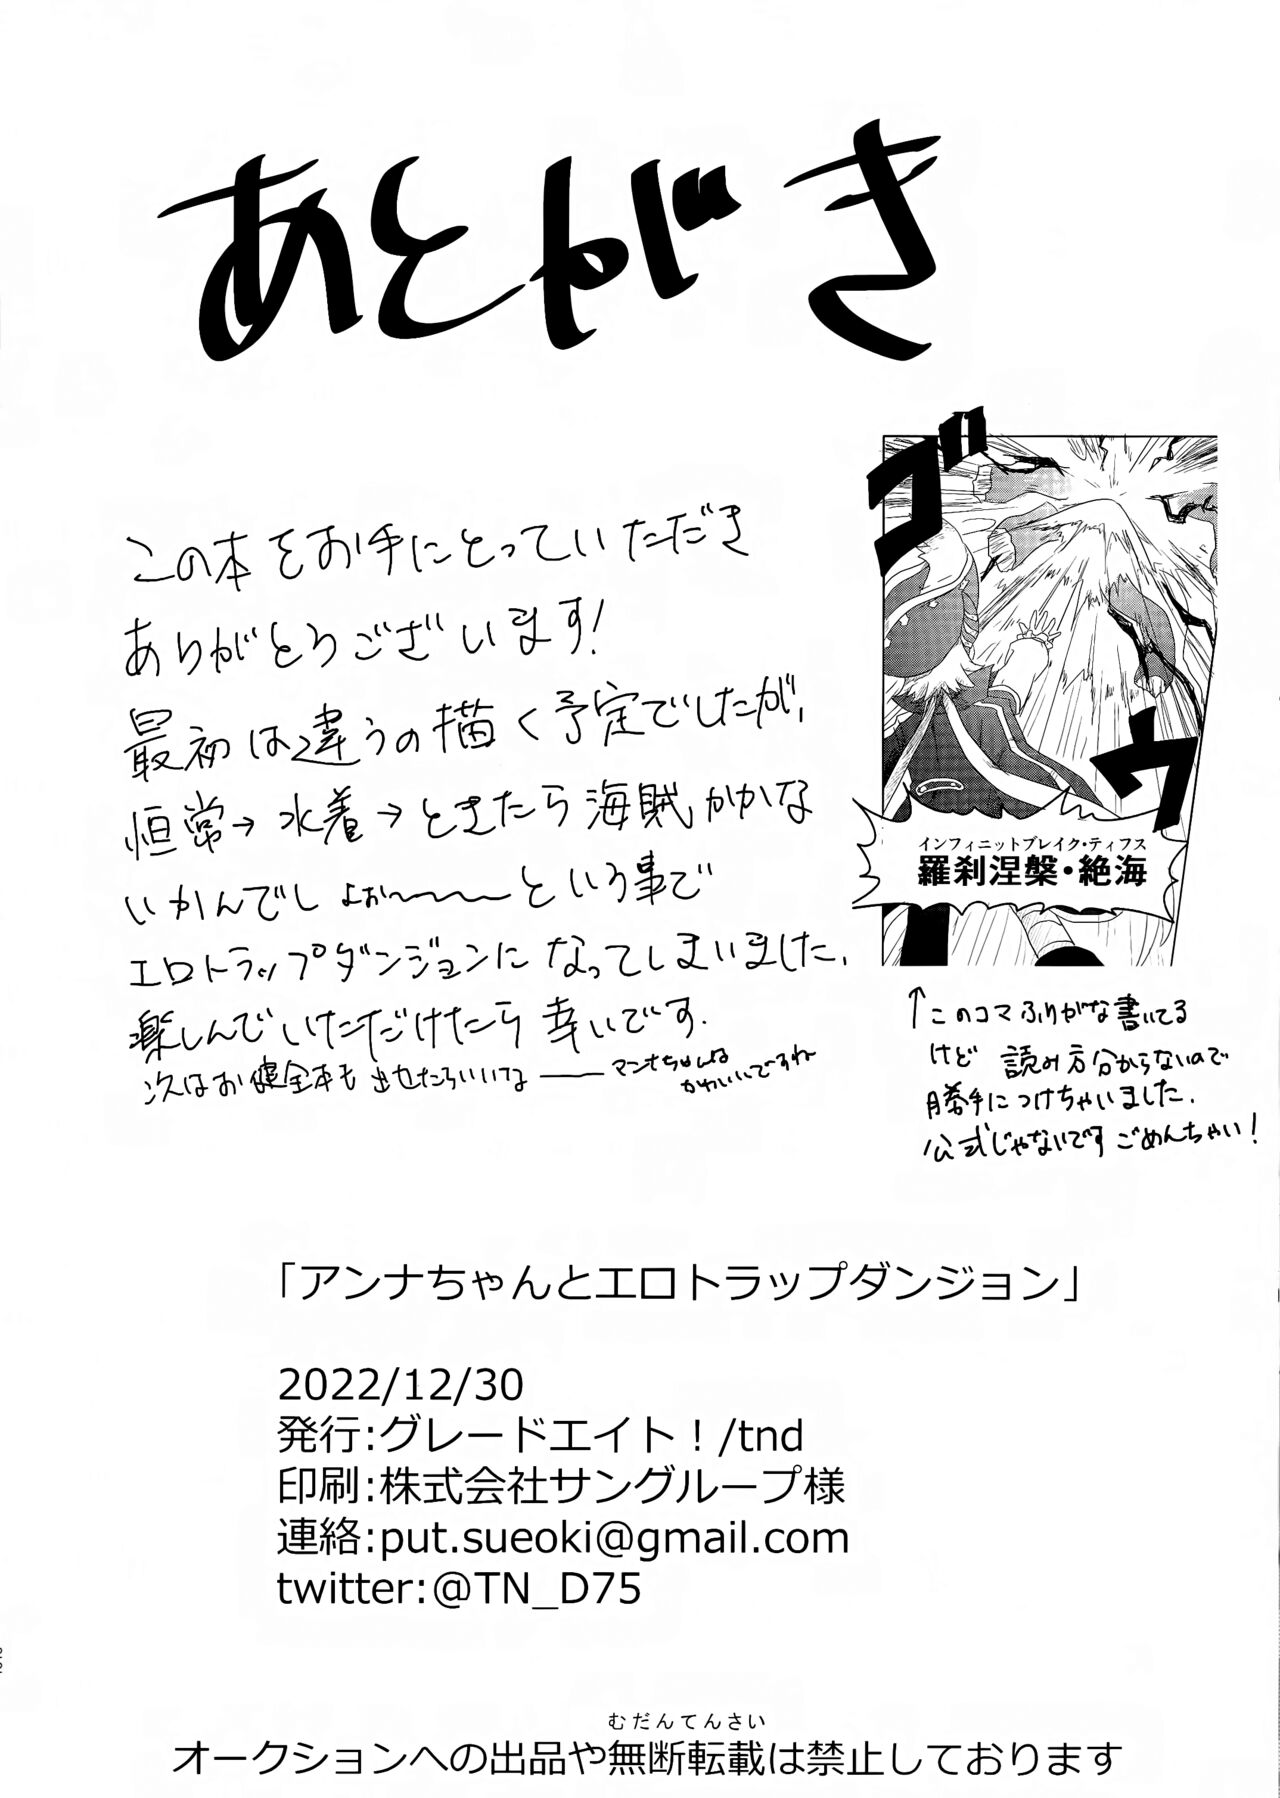 あとがき
この本をお手にとっていただき
ありがとうございます!
最初は違うの描く予定でしたが、
恒常→水着→ときたら海賊かかな
いかんでしょぉ〜〜〜という事で
エロトラップダンジョンになってしまいました、
楽しんでいただけたら幸いです.
次はお健全本も出せたらいいなー マンナちゃんは
かわいいですね
ゴ
ウ
インフィニットブレイク・ティフス
羅刹涅槃・絶海
↑このコマふりがな書いてる
けど 読み方分からないので
勝手につけちゃいました、
公式じゃないです ごめんちゃい!
「アンナちゃんとエロトラップダンジョン」
2022/12/30
発行:グレードエイト！/tnd
印刷:株式会社サングループ様
連絡:put.sueoki@gmail.com
twitter:@TN_D75
むだんてんさい
オークションへの出品や無断転載は禁止しております